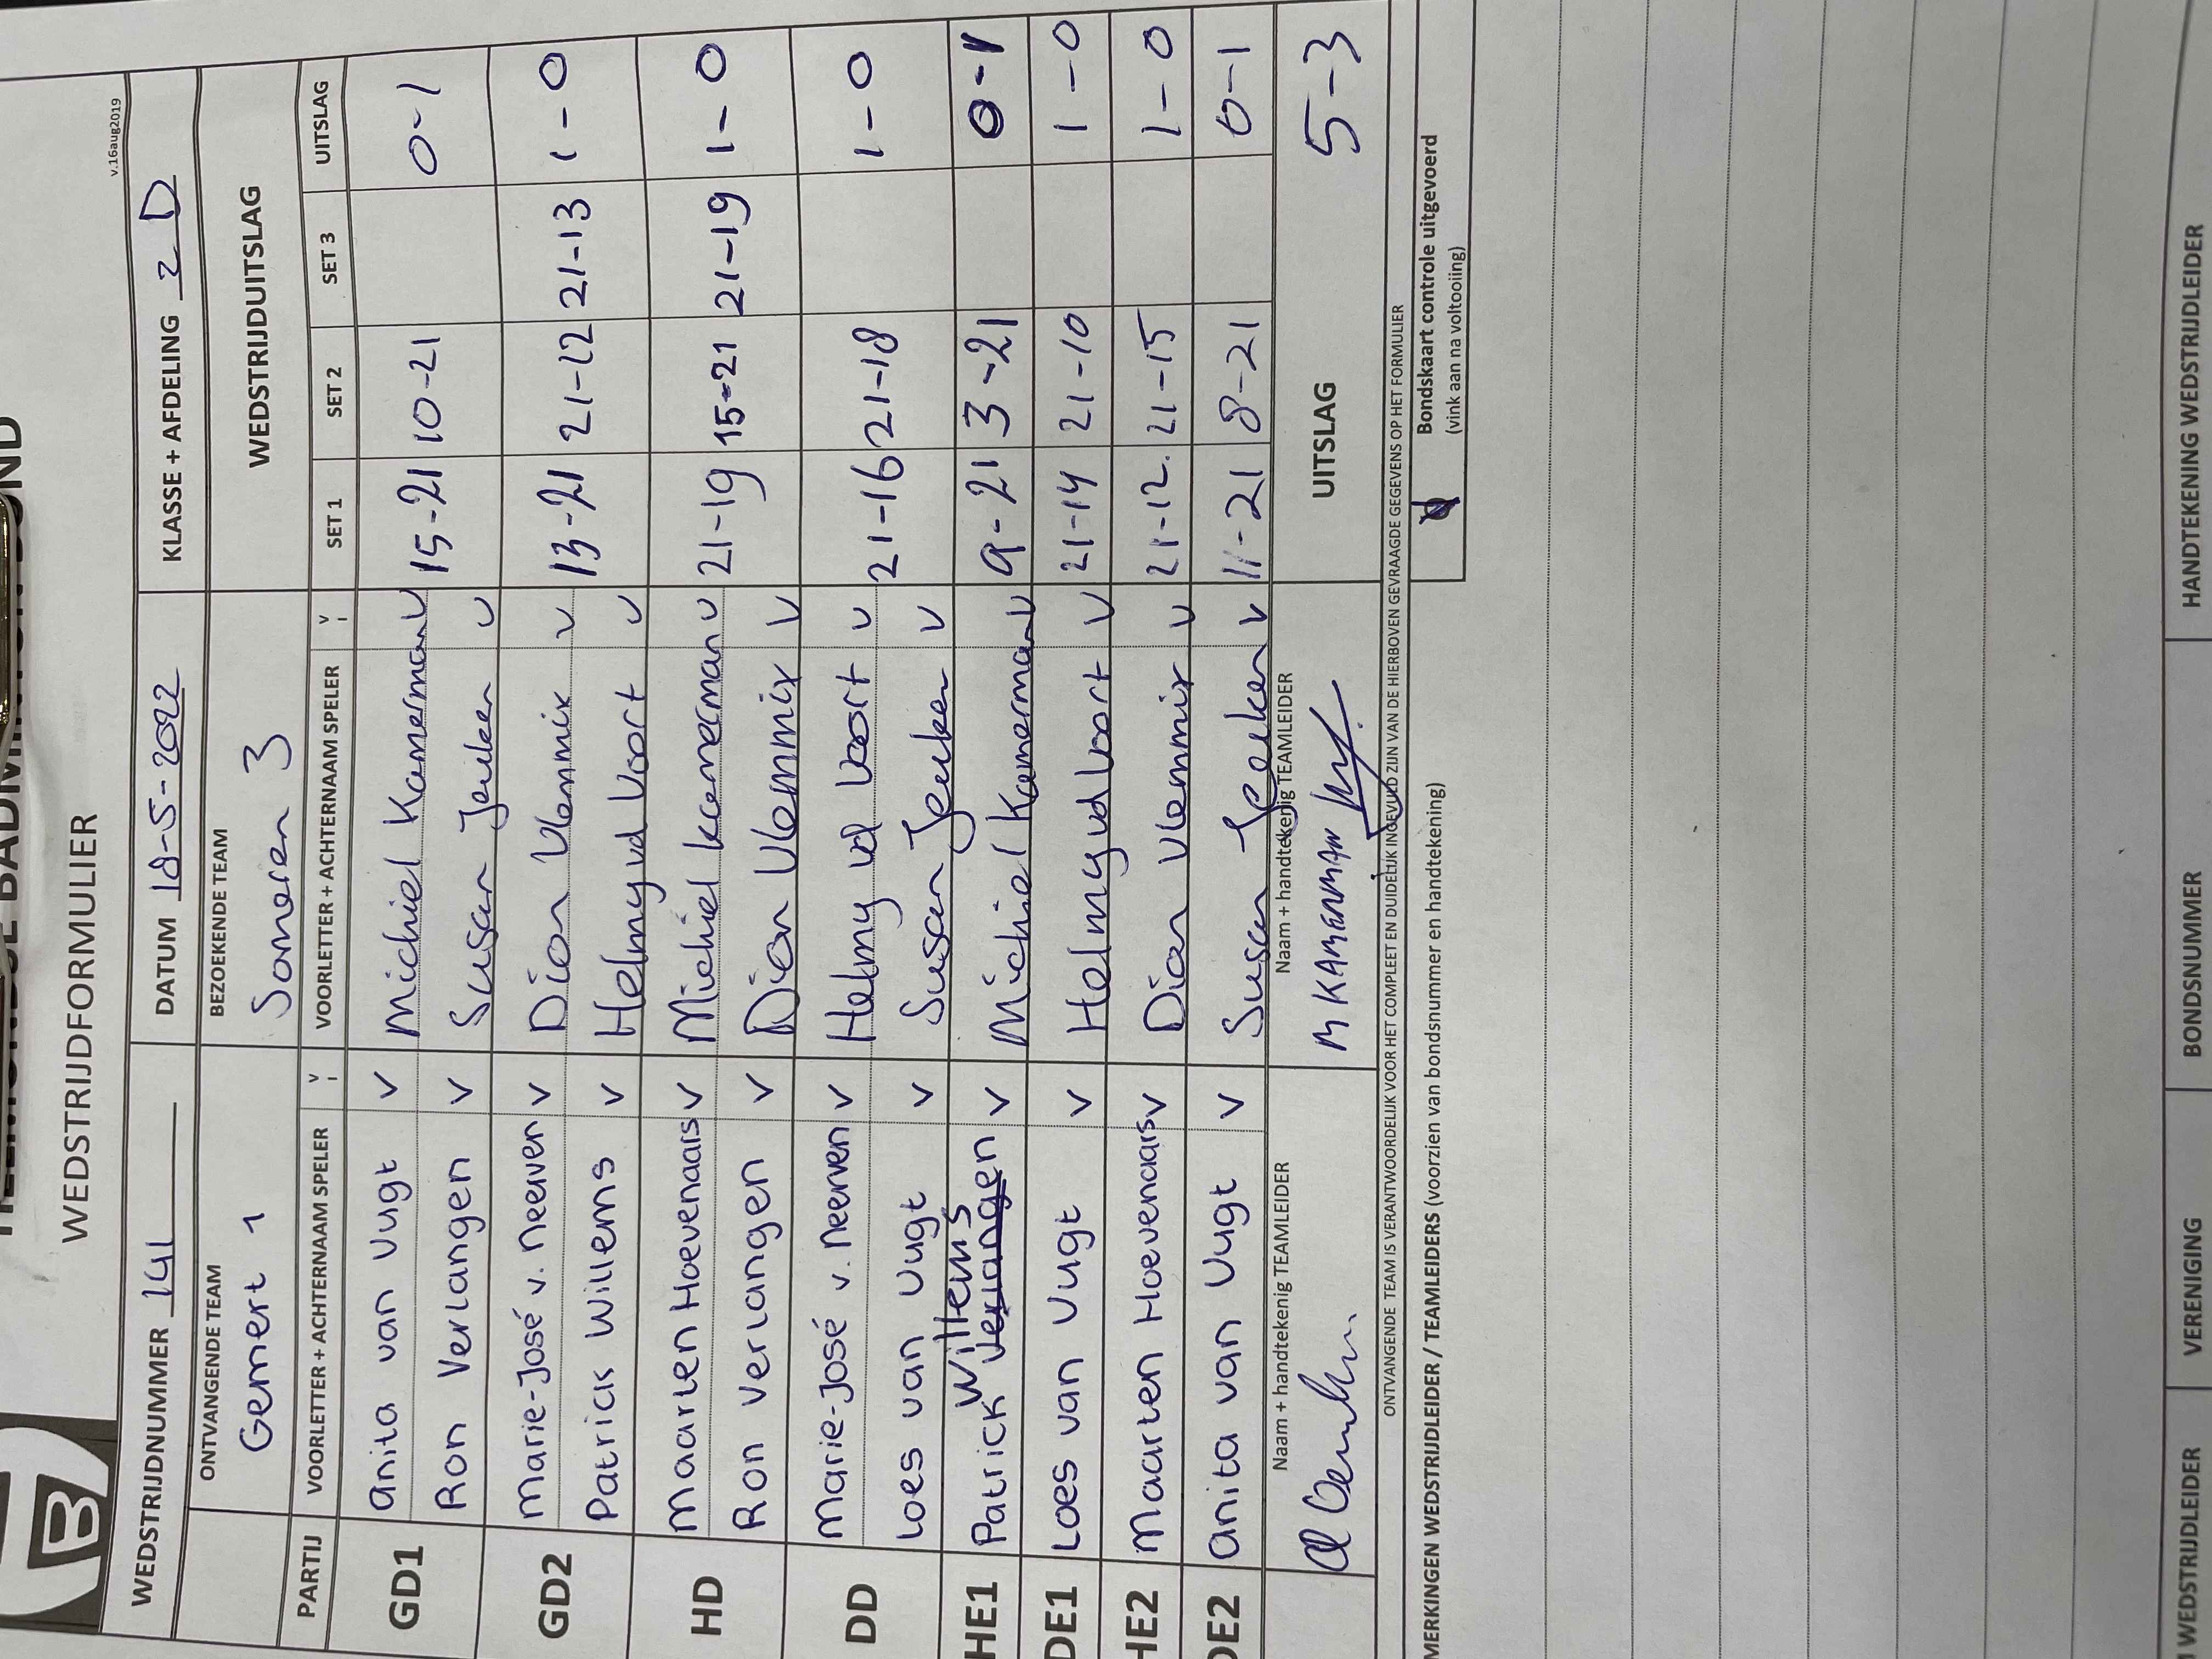 WEDSTRIJDFORMULIER
v.16aug2019
WEDSTRIJDNUMMER 141 DATUM 18-5-2022 KLASSE + AFDELING 2 D
ONTVANGENDE TEAM BEZOEKENDE TEAM WEDSTRIJDUITSLAG
Gemert 1 Someren 3
PARTIJ VOORLETTER + ACHTERNAAM SPELER V VOORLETTER + ACHTERNAAM SPELER V SET 1 SET 2 SET 3 UITSLAG
GD1 Anita van Vugt V Michiel Kamerman V 15-21 10-21 0-1
Ron Verlangen V Susan Jeuken V
GD2 Marie-José v. Neerven V Dion Vlemmix V 13-21 21-12 21-13 1-0
Patrick Willems V Helmy vd Voort V
HD Maarten Hoevenaars V Michiel Kamerman V 21-19 15-21 21-19 1-0
Ron Verlangen V Dion Vlemmix V
DD Marie-José v. Neerven V Helmy vd Voort V 21-16 21-18 1-0
Loes van Vugt V Susan Jeuken V
HE1 Patrick Willems Verlangen V Michiel Kamerman V 9-21 3-21 0-1
DE1 Loes van Vugt V Helmy vd Voort V 21-14 21-10 1-0
HE2 Maarten Hoevenaars V Dion Vlemmix V 21-12 21-15 1-0
DE2 Anita van Vugt V Susan Jeuken V 11-21 8-21 0-1
Naam + handtekenig TEAMLEIDER Naam + handtekenig TEAMLEIDER UITSLAG 5-3
M KAMERMAN
ONTVANGENDE TEAM IS VERANTWOORDELIJK VOOR HET COMPLEET EN DUIDELIJK INGEVULD ZIJN VAN DE HIERBOVEN GEVRAAGDE GEGEVENS OP HET FORMULIER
Bondskaart controle uitgevoerd
(vink aan na voltooiing)
MERKINGEN WEDSTRIJDLEIDER / TEAMLEIDERS (voorzien van bondsnummer en handtekening)
WEDSTRIJDLEIDER VERENIGING BONDSNUMMER HANDTEKENING WEDSTRIJDLEIDER